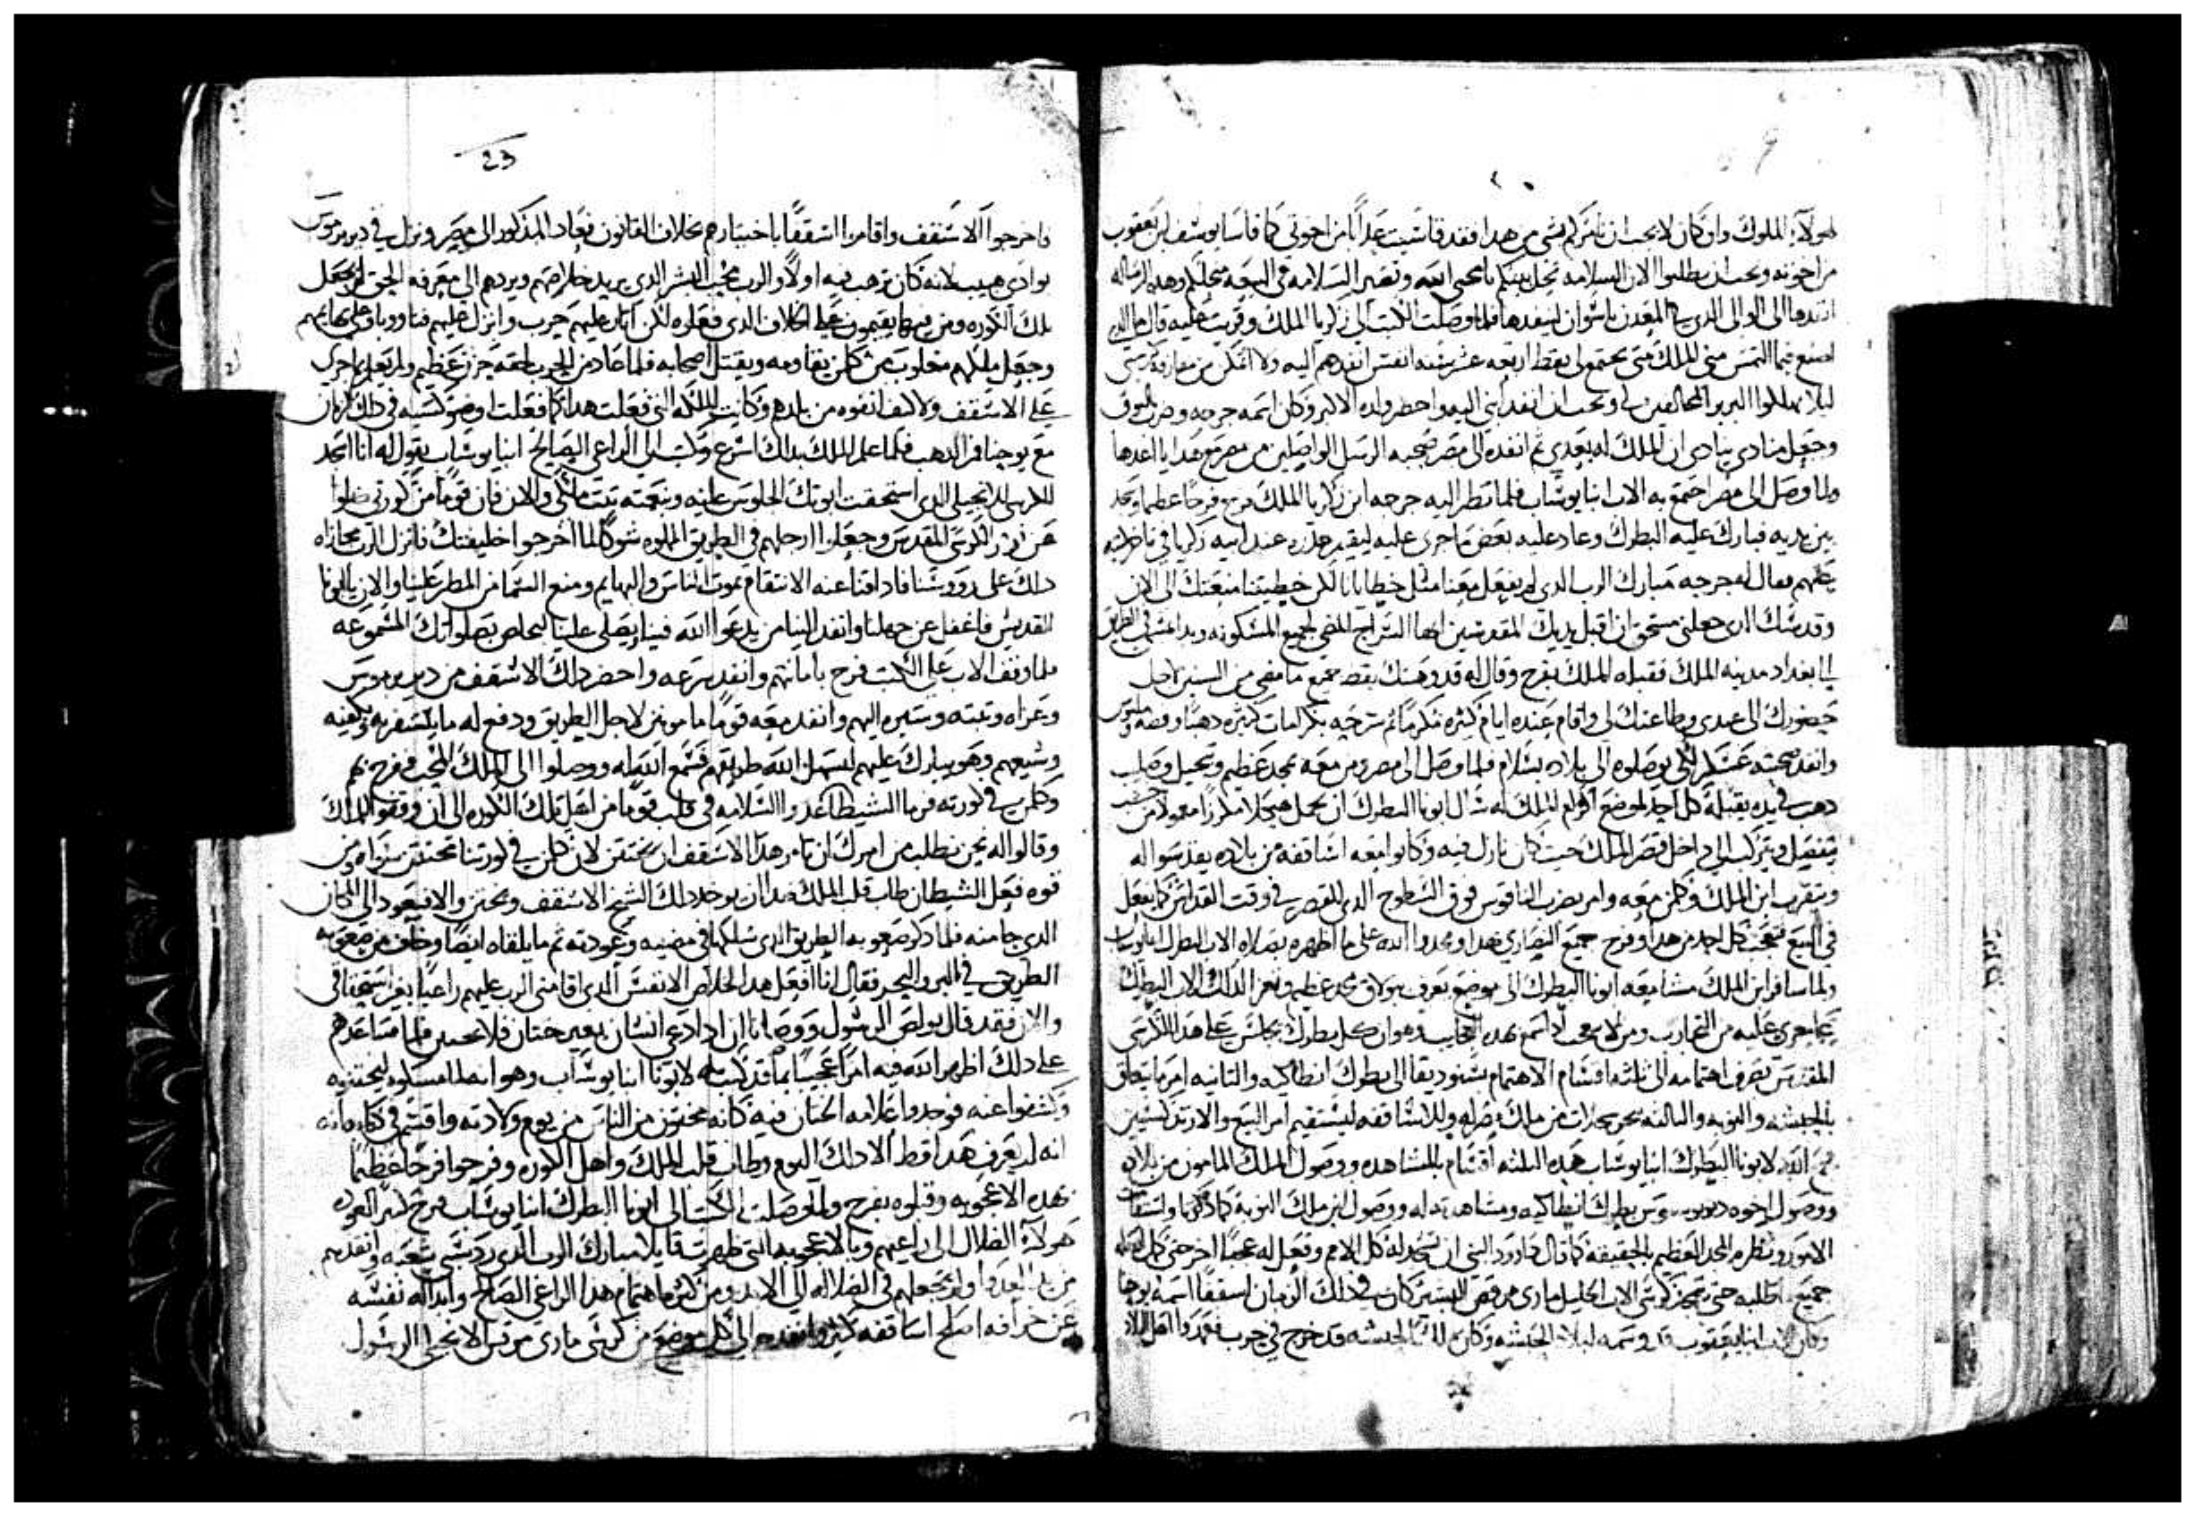 لهولآء الملوك وان كان لا يجب ان نامركم بشى من هدا فقد قاسيت عدابا من اخوتى كما قاسا يوسف ابن يعقوب
من اخوته ويجب ان يطلبوا الان السلامه نحن بينكم يا محبى الله وتصير السلامه فى البيعه بينكم وهده الرساله
انفدها الى الوالى الدى على المعدن باسوان لينفدها فلما وصلت الكتب الى زكريا الملك وقريت عليه قال ما الدى
اصنع فيما التمس منى الملك متى يجتمع لى بقط اربعه عشر سنه انفس انفدهم اليه ولا اتمكن من مفارقة كرسى
ليلا يملكوا البربر المخالفين لى ويجب ان انفد ابنى اليه واحضر ولده الاكبر وكان اسمه جرجه وضرب البوق
وجعل منادى ينادى ان الملك له بعدى ثم انفده الى مصر صحبه الرسل الواصلين من مصر مع هدايا انفدها
ولما وصل الى مصر اجتمع به الاب انبا يوساب فلما نظر اليه جرجه ابن زكريا الملك فرح فرحا عظيما وسجد
بين يديه فبارك عليه البطرك وعاد عليه بعض ما جرى عليه ليقيم عدره عند ابيه زكريا فى تاخر
عنهم فقال له جرجه مبارك الرب الدى لم يفعل معنا مثل خطايانا لكن خطيتنا منعتك الى الان
وقدسك الدى جعلنى مستحق ان اقبل يديك المقدستين ايها السراج المضى لجميع المسكونه وبدا المشى فى الطريق
الى بغداد مدينه الملك فقبله الملك بفرح وقال له قد وهبتك بقط جميع ما مضى من السنين لاجل
حضورك الى عندى وطاعتك لى واقام عنده ايام كثيره مكرما ثم سرحه بكرامات كثيره دهبا وفضه وملبوس
وانفد صحبته عسكر لكى يوصلوه الى بلاده بسلام فلما وصل الى مصر ومن معه بمجد عظيم وتبجيل وصليب
دهب فى يده يقبله كل احد لموضع اكرام الملك له سال ابونا البطرك ان يحمل هيكلا مكرزا معمولا من خشب
يتفصل ويتركب الى داخل قصر الملك حيث كان نازل فيه وكانوا معه اساقفه من بلاده بعد سواله
ويتقرب ابن الملك وكلمن معه وامر بضرب الناقوس فوق السطوح الدى للقصر فى وقت القداس كما يفعل
فى البيع فتعجب كل احد من هدا وفرح جميع النصارى بهدا ومجدوا الله على ما اظهره بصلاه الاب البطرك انبا يوساب
ولما سافر ابن الملك مشا معه ابونا البطرك الى موضع يعرف ببولاق بمجد عظيم وتعزا الدلك الاب البطرك
عما جرى عليه من التجارب ومن لا يتعجب ادا سمع بهده العجايب وهو ان كل بطرك يجلس على هدا الكرسى
المقدس يصرف اهتمامه الى ثلثه اقسام الاهتمام بسنوديقا الى بطرك انطاكيه والثانيه امر ما يتعلق
بالحبشه والنوبه والثالثه نحن محلات من ملك مصر له وللاساقفه ليستقيم امر البيع والارتدكسيين
تمم الله لابونا البطرك انبا يوساب هده الثلثه اقسام بالمشاهده ووصول الملك المامون من بلاده
ووصول اخوه ديونوسيوس بطرك انطاكيه ومشاهدته له ووصول ابن ملك النوبه كما دكرنا ولتستقيم
الامور ونظره المجد العظيم بالحقيقه كما قال داوود النبى ان تسجد له كل الامم وفعل له عجبا اخر حتى كمل له الله
جميع ما طلبه حتى تعجز كرسى الاب الجليل مارى مرقص البشير كان فى دلك الزمان اسقفا اسمه يوحنا
وكان الاب انبا يعقوب قد وسمه لبلاد الحبشه وكان ملك الحبشه قد خرج فى حرب فعمدوا اهل البلاد
23
فاخرجوا الاسقف واقاموا اسقفا باختيارهم بخلاف القانون فعاد المدكور الى مصر ونزل فى دير برموس
بوادى هبيب لانه كان ترهب فيه اولا والرب محب البشر الدى يريد خلاصهم ويردهم الى معرفه الحق لم يجعل
تلك الكوره ومن فيها يقيمون على الخلاف الدى فعلوه لكن اثار عليهم حرب وانزل عليهم فنا ووبا وعلى بهايمهم
وجعل ملكهم مغلوب من كلمن يقاومه ويقتل اصحابه فلما عاد من الحرب لحقه حزن عظيم ولم يعلم بما جرى
على الاسقف ولا كيف انفوه من بلدهم وكانت الملكه التى فعلت هدا كما فعلت اوضوكسيه فى دلك الزمان
مع يوحنا فم الدهب فلما علم الملك بدلك اسرع وكتب الى الراعى الصالح انبا يوساب يقول له انا اسجد
للكرسى الانجيلى الدى استحقت ابوتك الجلوس عليه وبنعمته تثبت ملكى والان فان قوما من كورتى ضلوا
عن نور الكرسى المقدس وجعلوا ارجلهم فى الطريق المملوه شوكا لما اخرجوا خليفتك فانزل الرب مجازاه
دلك على رووسنا فاداقنا عنه الانتقام بموت الناس والبهايم ومنع السما من المطر علينا والان يا ابونا
القديس فاغفل عن جهلنا وانفد الينا من يدعوا الله فينا ويصلى علينا لنخلص بصلواتك المسموعه
فلما وقف الاب على الكتب فرح بامانتهم وانفد بسرعه واحضر دلك الاسقف من دير برموس
وعزاه وثبته وسيره اليهم وانفد معه قوما مامونين لاجل الطريق ودفع له ما يتسفر به ويكفيه
وشيعهم وهو يبارك عليهم ليسهل الله طريقهم فسمع الله له ووصلوا الى الملك المحب وفرح بهم
وكلمن فى كورته فرما الشيطان عدوا السلامه فى قلب قوما من اهل تلك الكوره الى ان وقفوا للملك
وقالوا له نحن نطلب من امرك ان تامر هدا الاسقف ان يختتن لان كلمن فى كورتنا مختتن سواه ومن
قوه فعل الشيطان طاب قلب الملك بدا ان يوخد دلك الشيخ الاسقف ويختن والا فيعود الى المكان
الدى جا منه فلما دكر صعوبه الطريق الدى سلكها فى مضيه وعودته ثم ما يلقاه ايضا وخاف من صعوبه
الطريق فى البر والبحر فقال انا افعل هدا لخلاص الانفس الدى اقامنى الرب عليهم راعيا بغير استحقاق
والان فقد قال بولص الرسول ووصانا ان ادا دعى انسان بغير ختان فلا يختتن فلما ساعدهم
على دلك اظهر الله فيه امرا عجيبا مما قد كتب به لابونا انبا يوساب وهو انه لما مسكوه ليختنوه
وكشفوا عنه فوجدوا علامه الختان فيه كانه مختون من الناس من يوم ولادته واقسم فى كتابه
انه لم يعرف هدا قط الا دلك اليوم وطاب قلب الملك واهل الكوره وفرحوا فرحا عظيما
بهده الاعجوبه وقبلوه بفرح ولما وصلت الكتب الى ابونا البطرك انبا يوساب فرح كثيرا لعوده
هولآء الضلال الى راعيهم وبالاعجوبه التى ظهرت قايلا مبارك الرب الدى رد سبى شعبه وانقدهم
من يد العدوا ولم يجعلهم فى الضلاله الى الابد ومن كثره اهتمام هدا الراعى الصالح وابداله نفسه
عن خرافه اصلح اساقفه كثير وانفدهم الى كل موضع من كرسى مارى مرقس الانجيلى الرسول